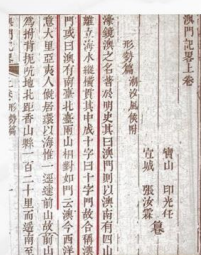 澳門記略上卷
寶山 印光任
宣城 張汝霖 纂
形勢篇 潮汐風候附
濠鏡澳之名著於明史其曰澳門則以澳南有四山
離立海水縱橫貫其中成十字曰十字門故合稱澳
門或曰澳有南臺北臺兩山相對如門云澳今西洋
意大里亞夷人僦居環以海惟一逕達前山故前山
為拊背扼吭地北距香山縣一百二十里而遙南至